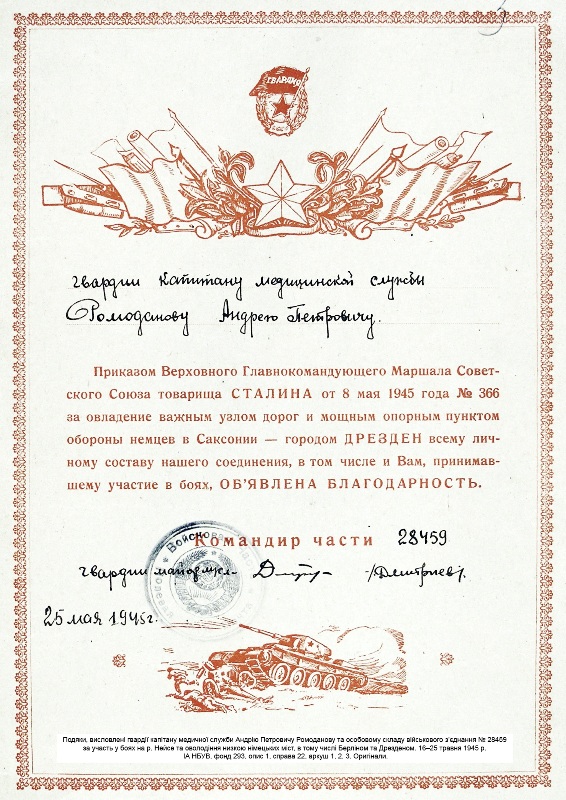 ГВАРДИЯ
гвардии капитану медицинской службы
Ромоданову Андрею Петровичу.
Приказом Верховного Главнокомандующего Маршала Совет-
ского Союза товарища СТАЛИНА от 8 мая 1945 года № 366
за овладение важным узлом дорог и мощным опорным пунктом
обороны немцев в Саксонии — городом ДРЕЗДЕН всему лич-
ному составу нашего соединения, в том числе и Вам, принимав-
шему участие в боях, ОБ'ЯВЛЕНА БЛАГОДАРНОСТЬ.
Командир части 28459
гвардии майор м/сл- /Дмитриев/.
25 мая 1945г.
Подяки, висловлені гвардії капітану медичної служби Андрію Петровичу Ромоданову та особовому складу військового з'єднання № 28459
за участь у боях на р. Нейсе та оволодіння низкою німецьких міст, в тому числі Берліном та Дрезденом. 16–25 травня 1945 р.
ІА НБУВ, фонд 293, опис 1, справа 22, аркуш 1, 2, 3. Оригінали.